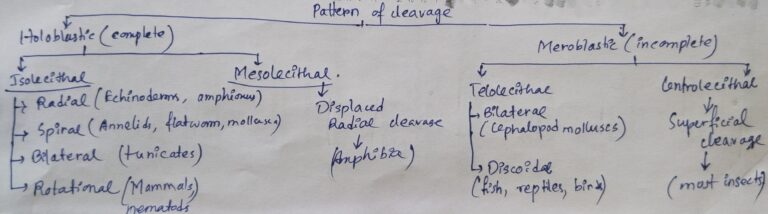 Pattern of cleavage
Holoblastic (complete)
Meroblastic (incomplete)
Isolecithal
Radial (Echinoderms, amphioxus)
Spiral (Annelids, flatworm, molluscs)
Bilateral (tunicates)
Rotational (Mammals,
nematods
Mesolecithal.
Displaced
Radial cleavage
(Amphibia)
Telolecithal
Bilateral
(Cephalopod molluscs)
Discoidal
(fish, reptiles, birds)
Centrolecithal
Superficial
cleavage
(most insects)